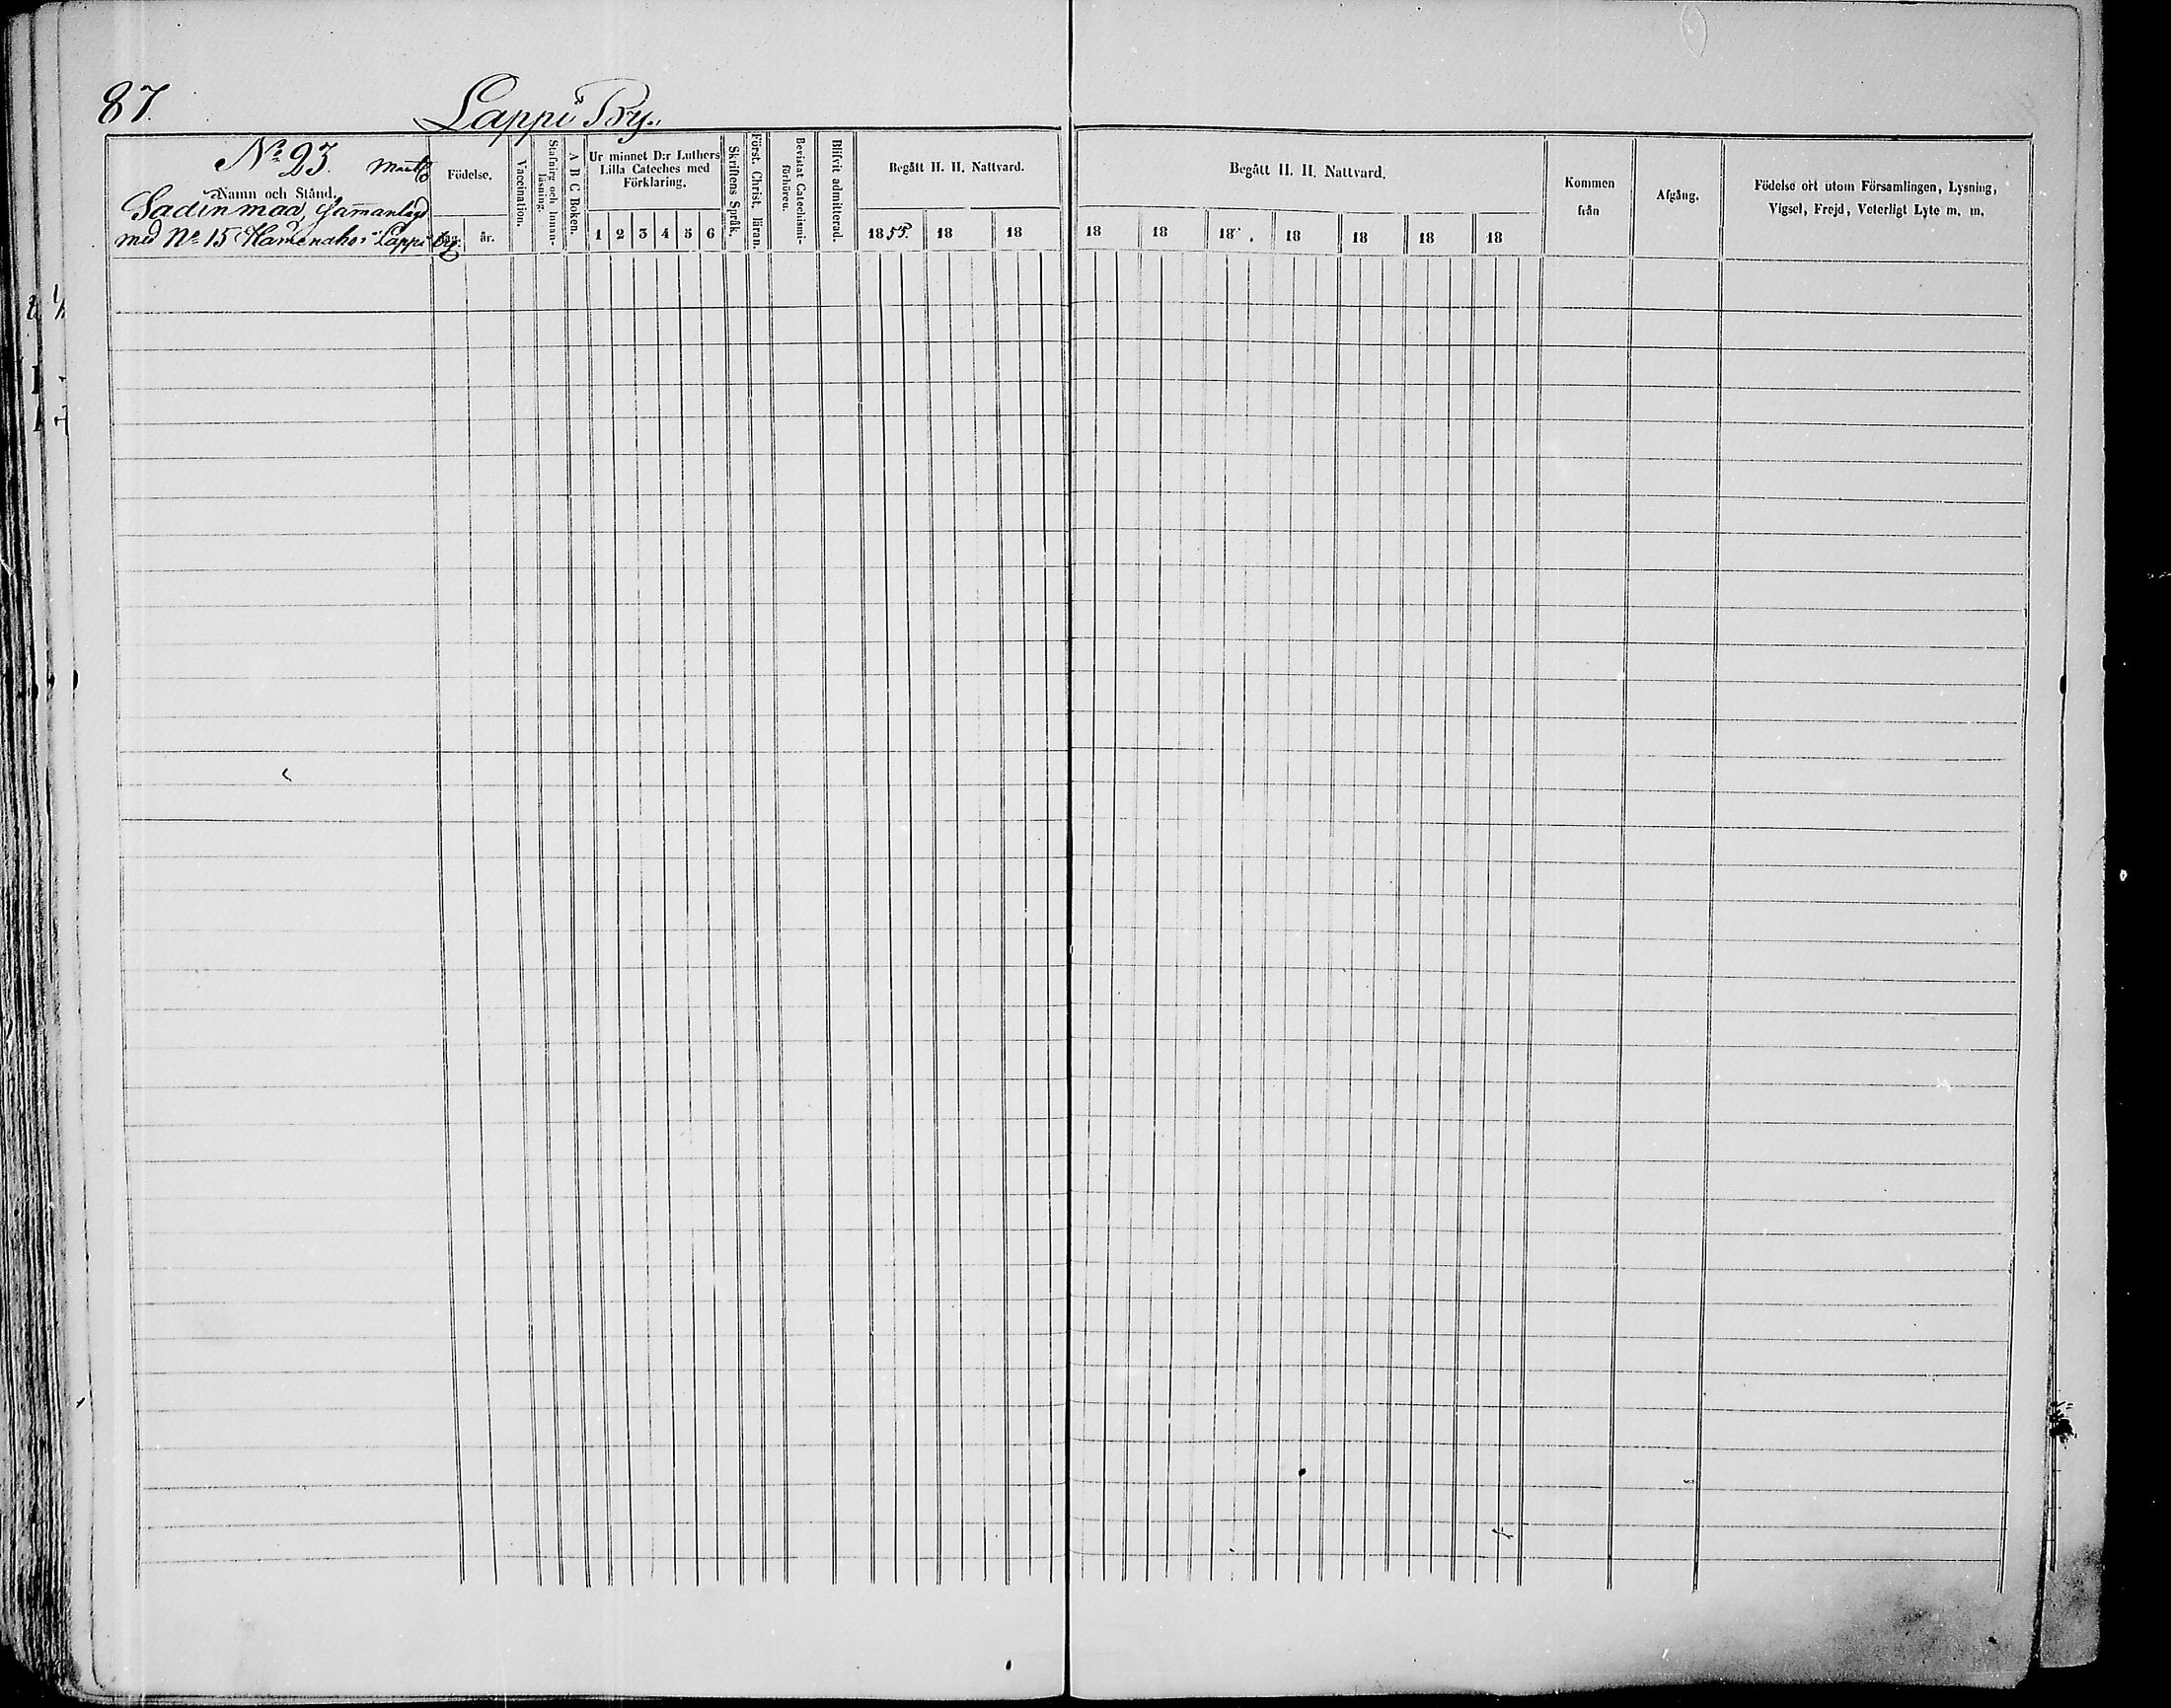 87.
Lappi By.
No 23.
Namn och Stånd.
Sadinmaa, Samanlagd
med No 15 Hamenaho i Lappi by.
Födelse.
år.
Vaccination.
Stafning och Innan-
läsning.
A B C Boken.
Ur minnet D:r Luthers
Lilla Cateches med
Förklaring.
1 2 3 4 5 6
Skriftens Språk.
Först. Christ. läran.
Bevistat Catechismi-
förhören.
Blifvit admitterad.
Begått H. H. Nattvard.
1855. 18 18
Begått H. H. Nattvard.
18 18 18 18 18 18 18
Kommen
från
Afgång.
Födelse ort utom Församlingen, Lysning,
Vigsel, Frejd, Veterligt Lyte m. m.